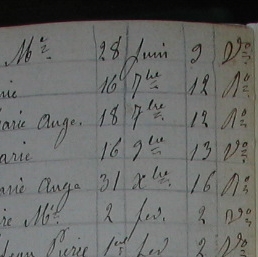 Mie 28 Juin 9 Do
rie 16 7bre 12 Ro
arie Ange. 18 7bre 12 Ro
arie 16 9bre 13 Do
arie Ange 31 Xbre 16 Ro
re Mie 2 fev. 2 Do
Jean Pierre 1er fev 2 Do